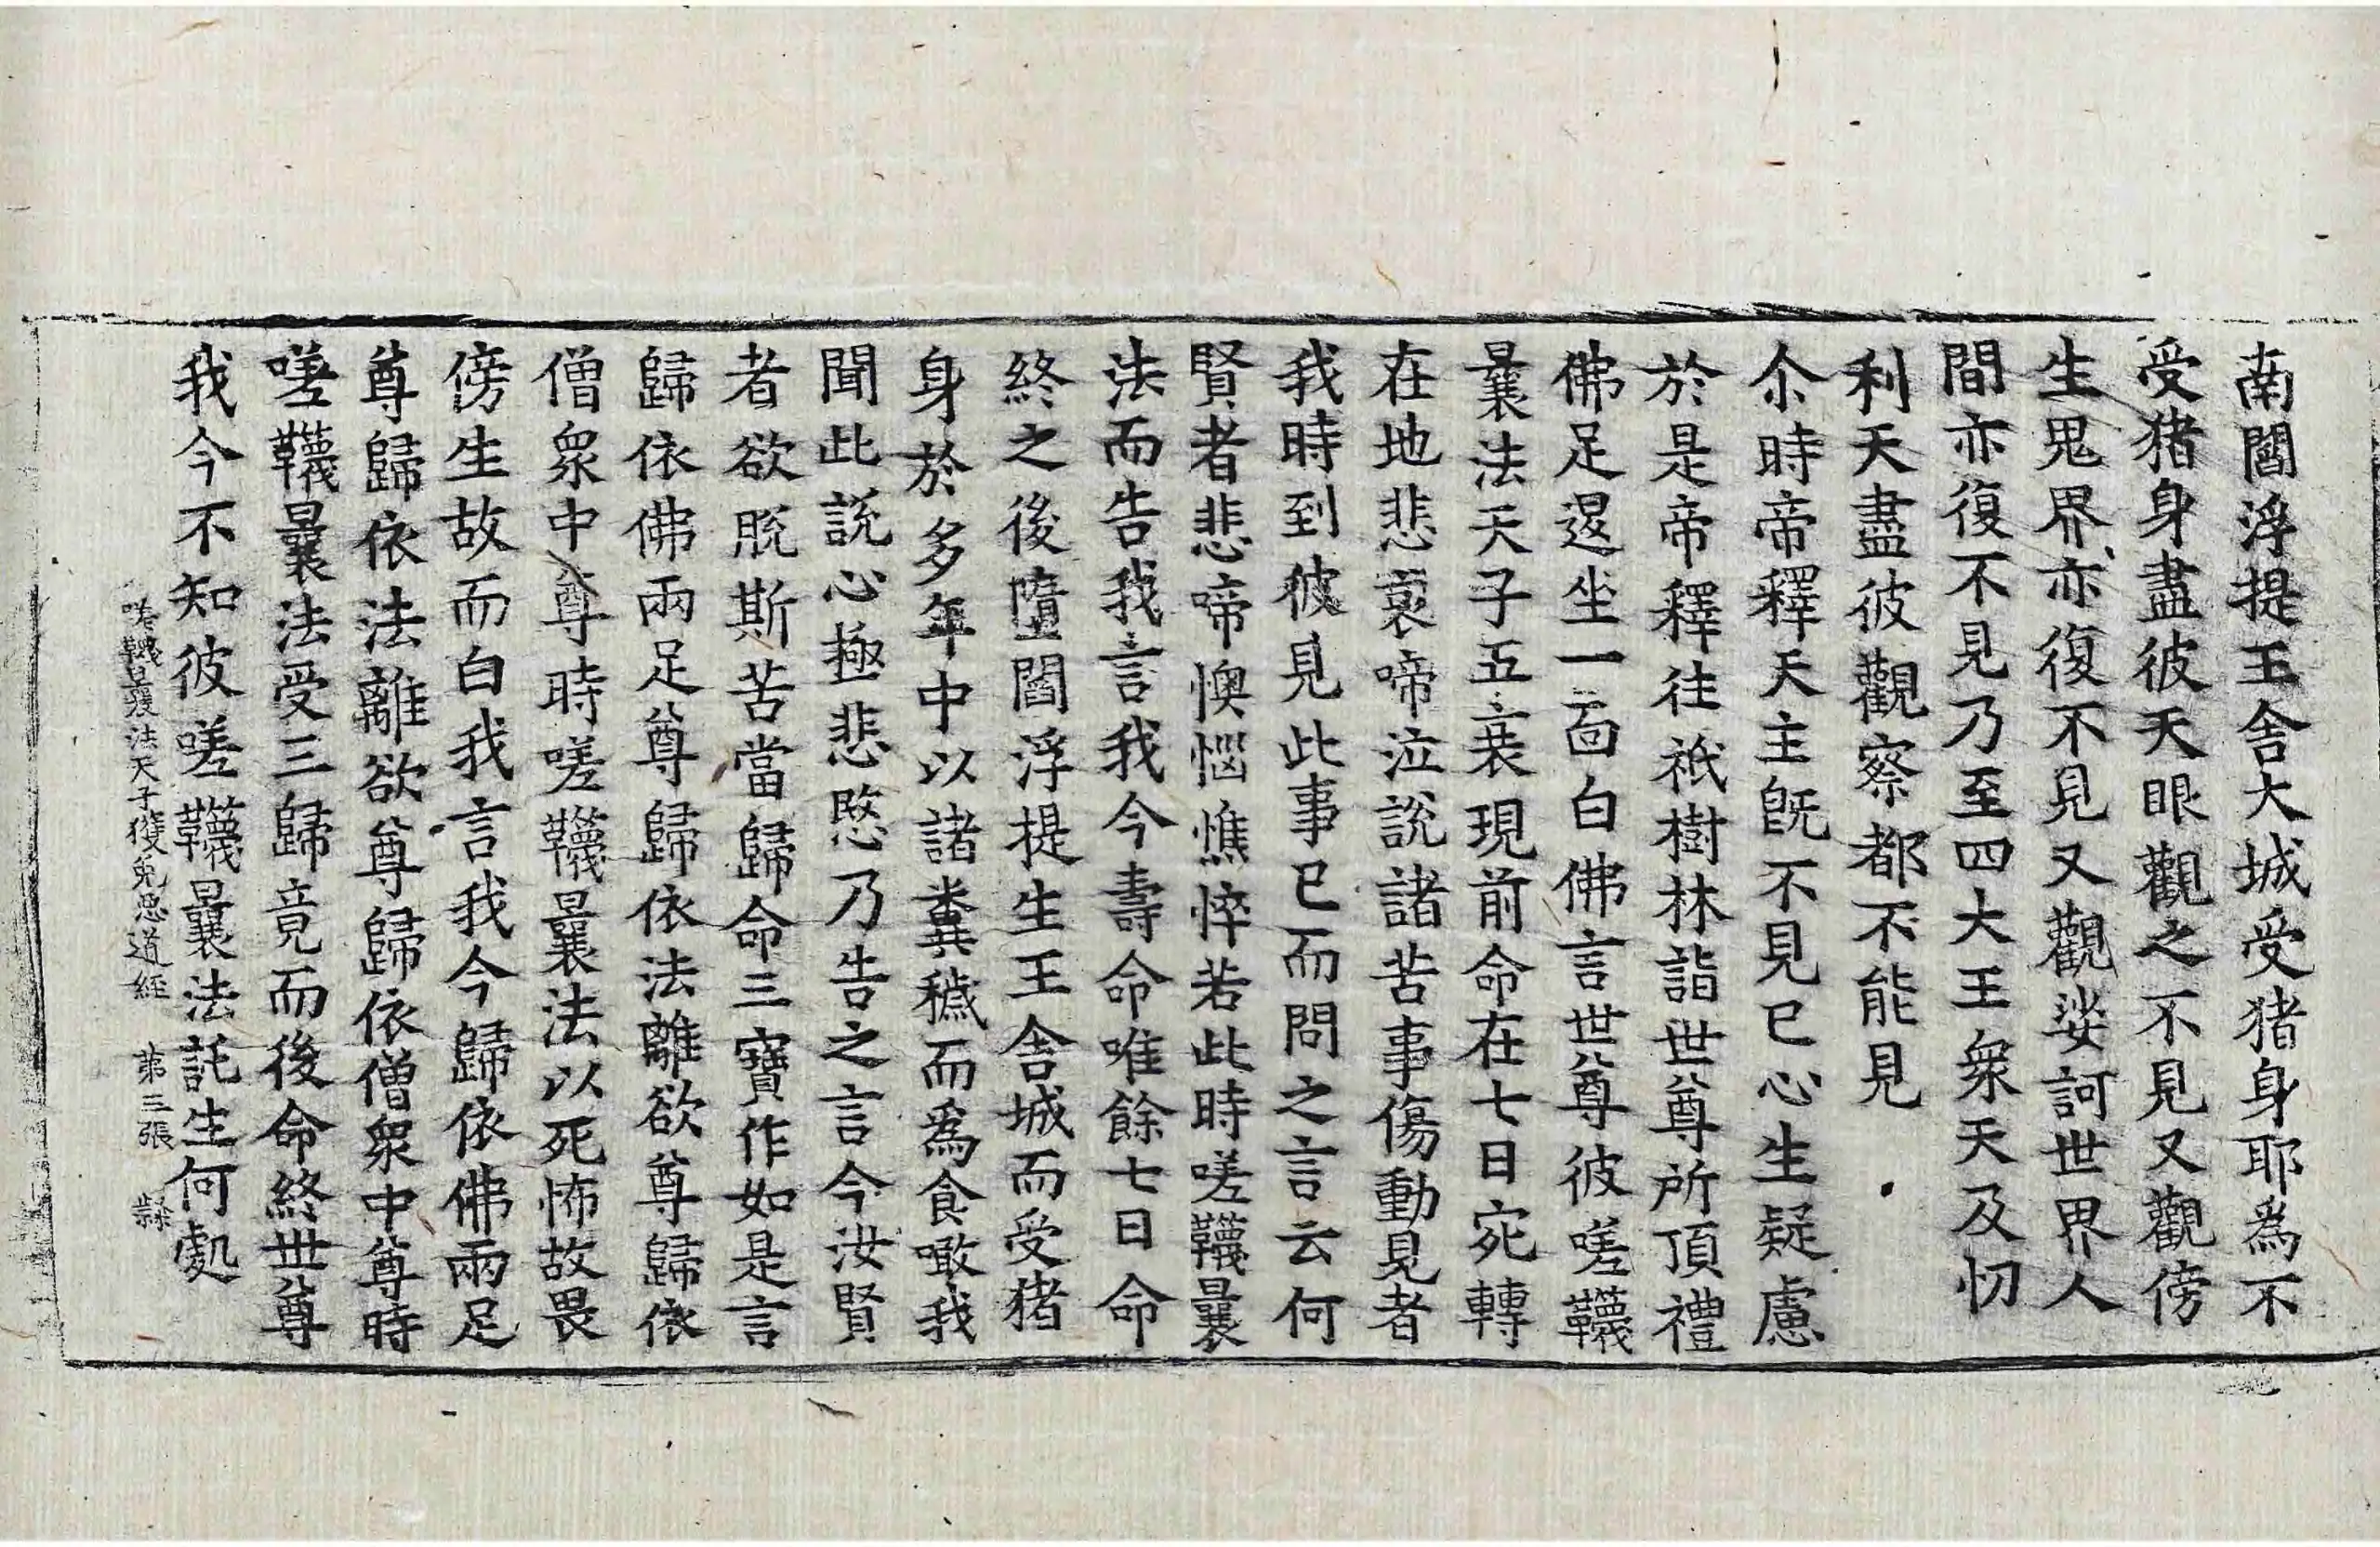 南閻浮提王舍大城受猪身耶為不
受猪身盡彼天眼觀之不見又觀傍
生鬼界亦復不見又觀娑訶世界人
間亦復不見乃至四大王衆天及忉
利天盡彼觀察都不能見
尒時帝釋天主旣不見已心生疑慮
於是帝釋往祇樹林詣世尊所頂禮
佛足退坐一面白佛言世尊彼嗟韈
曩法天子五衰現前命在七日宛轉
在地悲哀啼泣說諸苦事傷動見者
我時到彼見此事已而問之言云何
賢者悲啼懊惱憔悴若此時嗟韈曩
法而告我言我今壽命唯餘七日命
終之後墮閻浮提生王舍城而受猪
身於多年中以諸糞穢而爲食噉我
聞此說心極悲愍乃告之言今汝賢
者欲脫斯苦當歸命三寶作如是言
歸依佛兩足尊歸依法離欲尊歸依
僧衆中尊時嗟韈曩法以死怖故畏
傍生故而白我言我今歸依佛兩足
尊歸依法離欲尊歸依僧衆中尊時
嗟韈曩法受三歸竟而後命終世尊
我今不知彼嗟韈曩法託生何處
嗟韈曩法天子獲免惡道經 第三張 隸